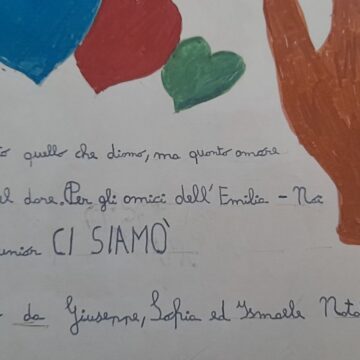 quello che diamo, ma quanto amore
nel dare. Per gli amici dell'Emilia - Noi
unior CI SIAMO
da Giuseppe, Sofia ed Ismaele Nota